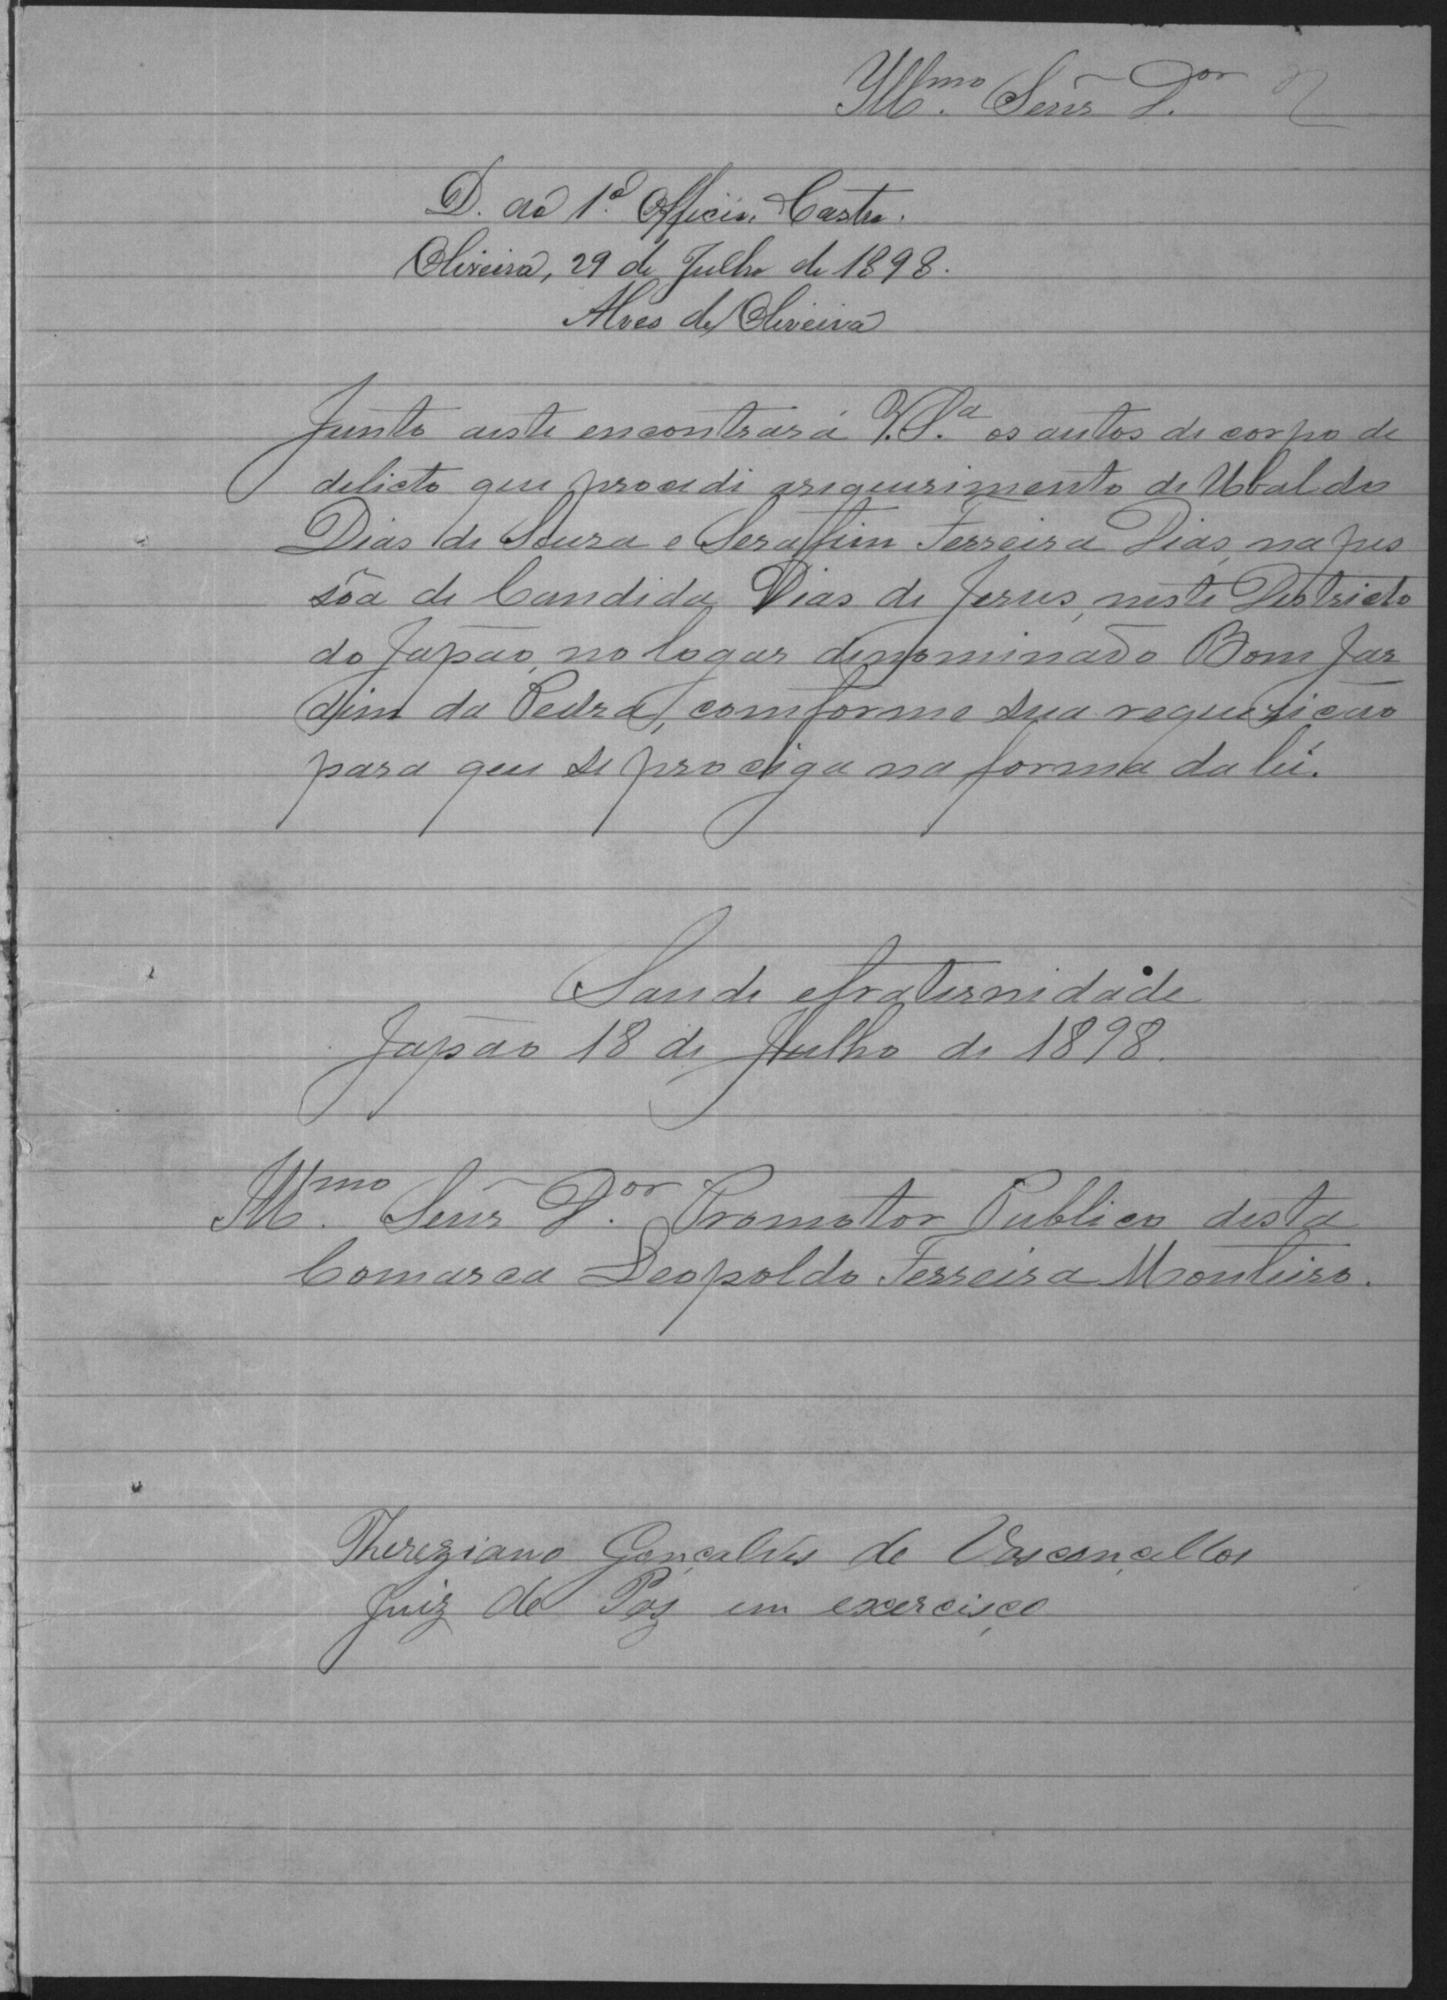 Illmo. Senr. Dor.
D. ao 1º. Officio, Castro.
Oliveira, 29 de Julho de 1898.
Alves de Oliveira
Junto aeste encontrará V.S.a os autos de corpo de
delicto que procedi arequerimento de Ubaldo
Dias de Souza e Seraffim Ferreira Dias, na pes
sôa de Candida Dias de Jesus, neste Destricto
do Japão, no logar denominado Bom Jar
dim da Pedra, comforme sua requezicão
para que se prociga na forma da lei.
Saude efraternidade
Japão 18 de Julho de 1898.
Illmo. Senr. Dor. Promotor Publico desta
Comarca Leopoldo Ferreira Monteiro.
Thereziano Gonçalves de Vasconcellos
Juiz de Paz em exercisço